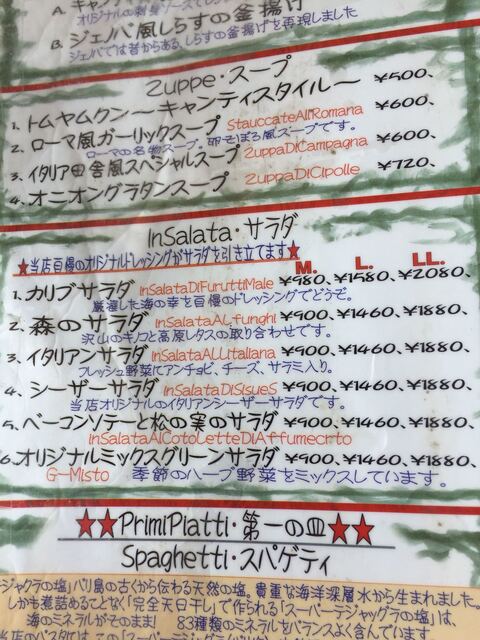 A. キャン
オリジナルの刺身ソースで
B. ジェノバ風しらすの釜揚げ
ジェノバでは昔からある、しらすの釜揚げを再現しました
Zuppe・スープ
1. トムヤムクン〜キャンティスタイル〜 ¥500、
2. ローマ風ガーリックスープ StauccateAllRomana ¥600、
ローマの名物スープ。卵そぼろ風スープです。
3. イタリア田舎風スペシャルスープ ZuppaDiCampagna ¥600、
4. オニオングラタンスープ ZuppaDiCipolle ¥720、
InSalata・サラダ
★当店自慢のオリジナルドレッシングがサラダを引き立てます★ M. L. LL.
1. カリブサラダ InSalataDiFuruttiMale ¥980、¥1580、¥2080、
厳選した海の幸を自慢のドレッシングでどうぞ。
2. 森のサラダ InSalataALfunghi ¥900、¥1460、¥1880、
沢山のキノコと高原レタスの取り合わせです。
3. イタリアンサラダ InSalataALLitaliana ¥900、¥1460、¥1880、
フレッシュ野菜にアンチョビ、チーズ、サラミ入り。
4. シーザーサラダ InSalataDiSisueS ¥900、¥1460、¥1880、
当店オリジナルのイタリアンシーザーサラダです。
5. ベーコンソテーと松の実のサラダ ¥900、¥1460、¥1880、
InSalataAlCotoLetteDiAffumecrto
6. オリジナルミックスグリーンサラダ ¥900、¥1460、¥1880、
G-Misto 季節のハーブ野菜をミックスしています。
★★PrimiPiatti・第一の皿★★
Spaghetti・スパゲティ
ジャクラの塩」バリ島の古くから伝わる天然の塩。貴重な海洋深層水から生まれました。
しかも煮詰めることなく「完全天日干し」で作られる「スーパーテジャックラの塩」は、
海のミネラルがそのまま! 83種類のミネラルをバランスよく含んでいます